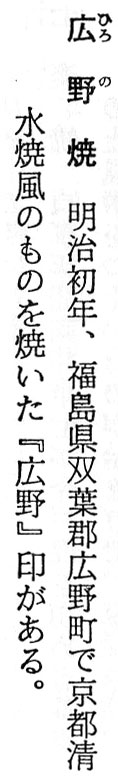 広野焼　明治初年、福島県双葉郡広野町で京都清
水焼風のものを焼いた『広野』印がある。
ひろ　の